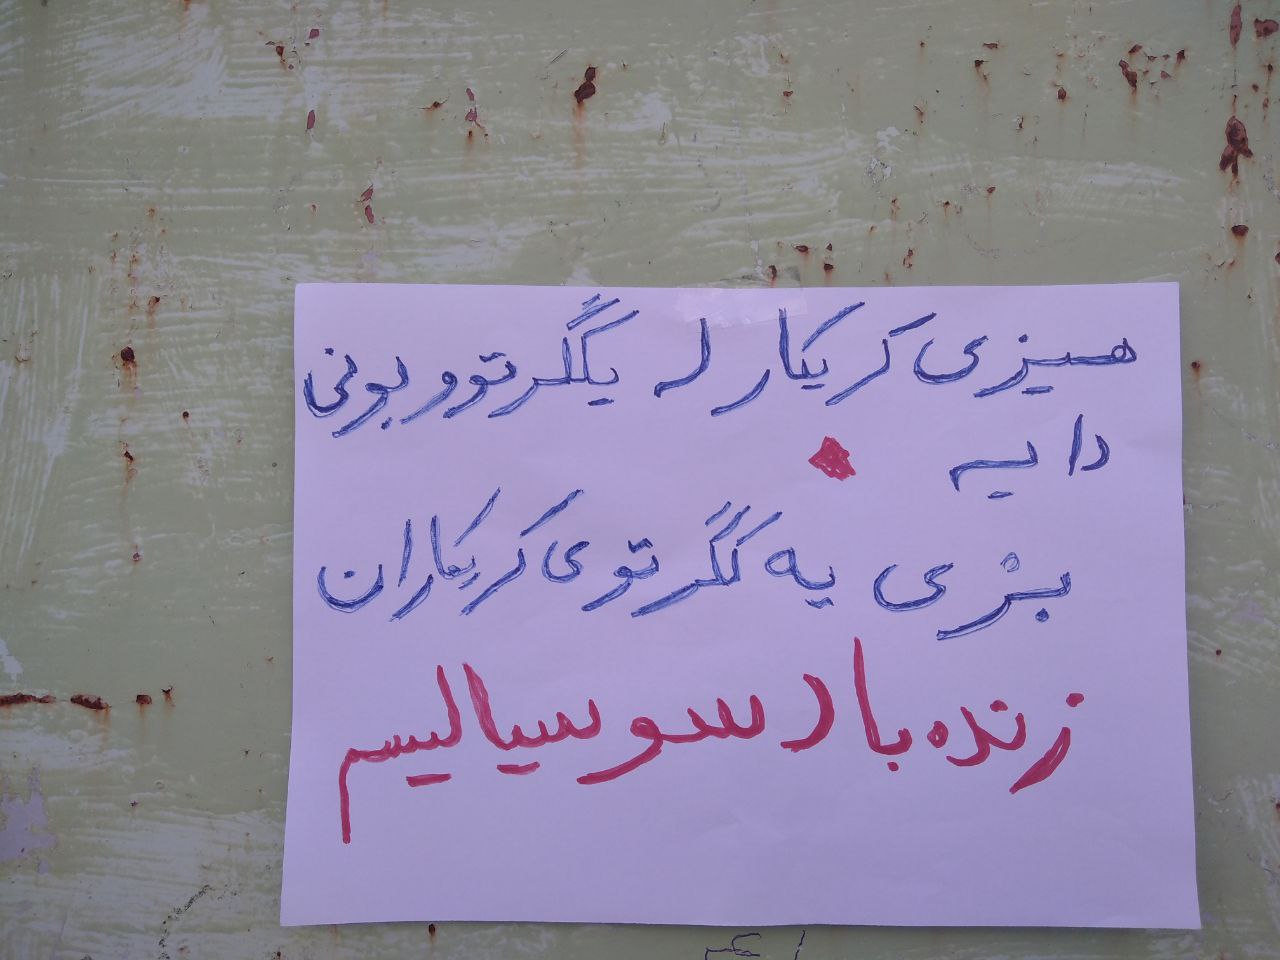 هیزی کریکار لە یگگرتوو بونی
دایە
بژی یەکگرتوی کریکاران
زنده باد سوسیالیسم